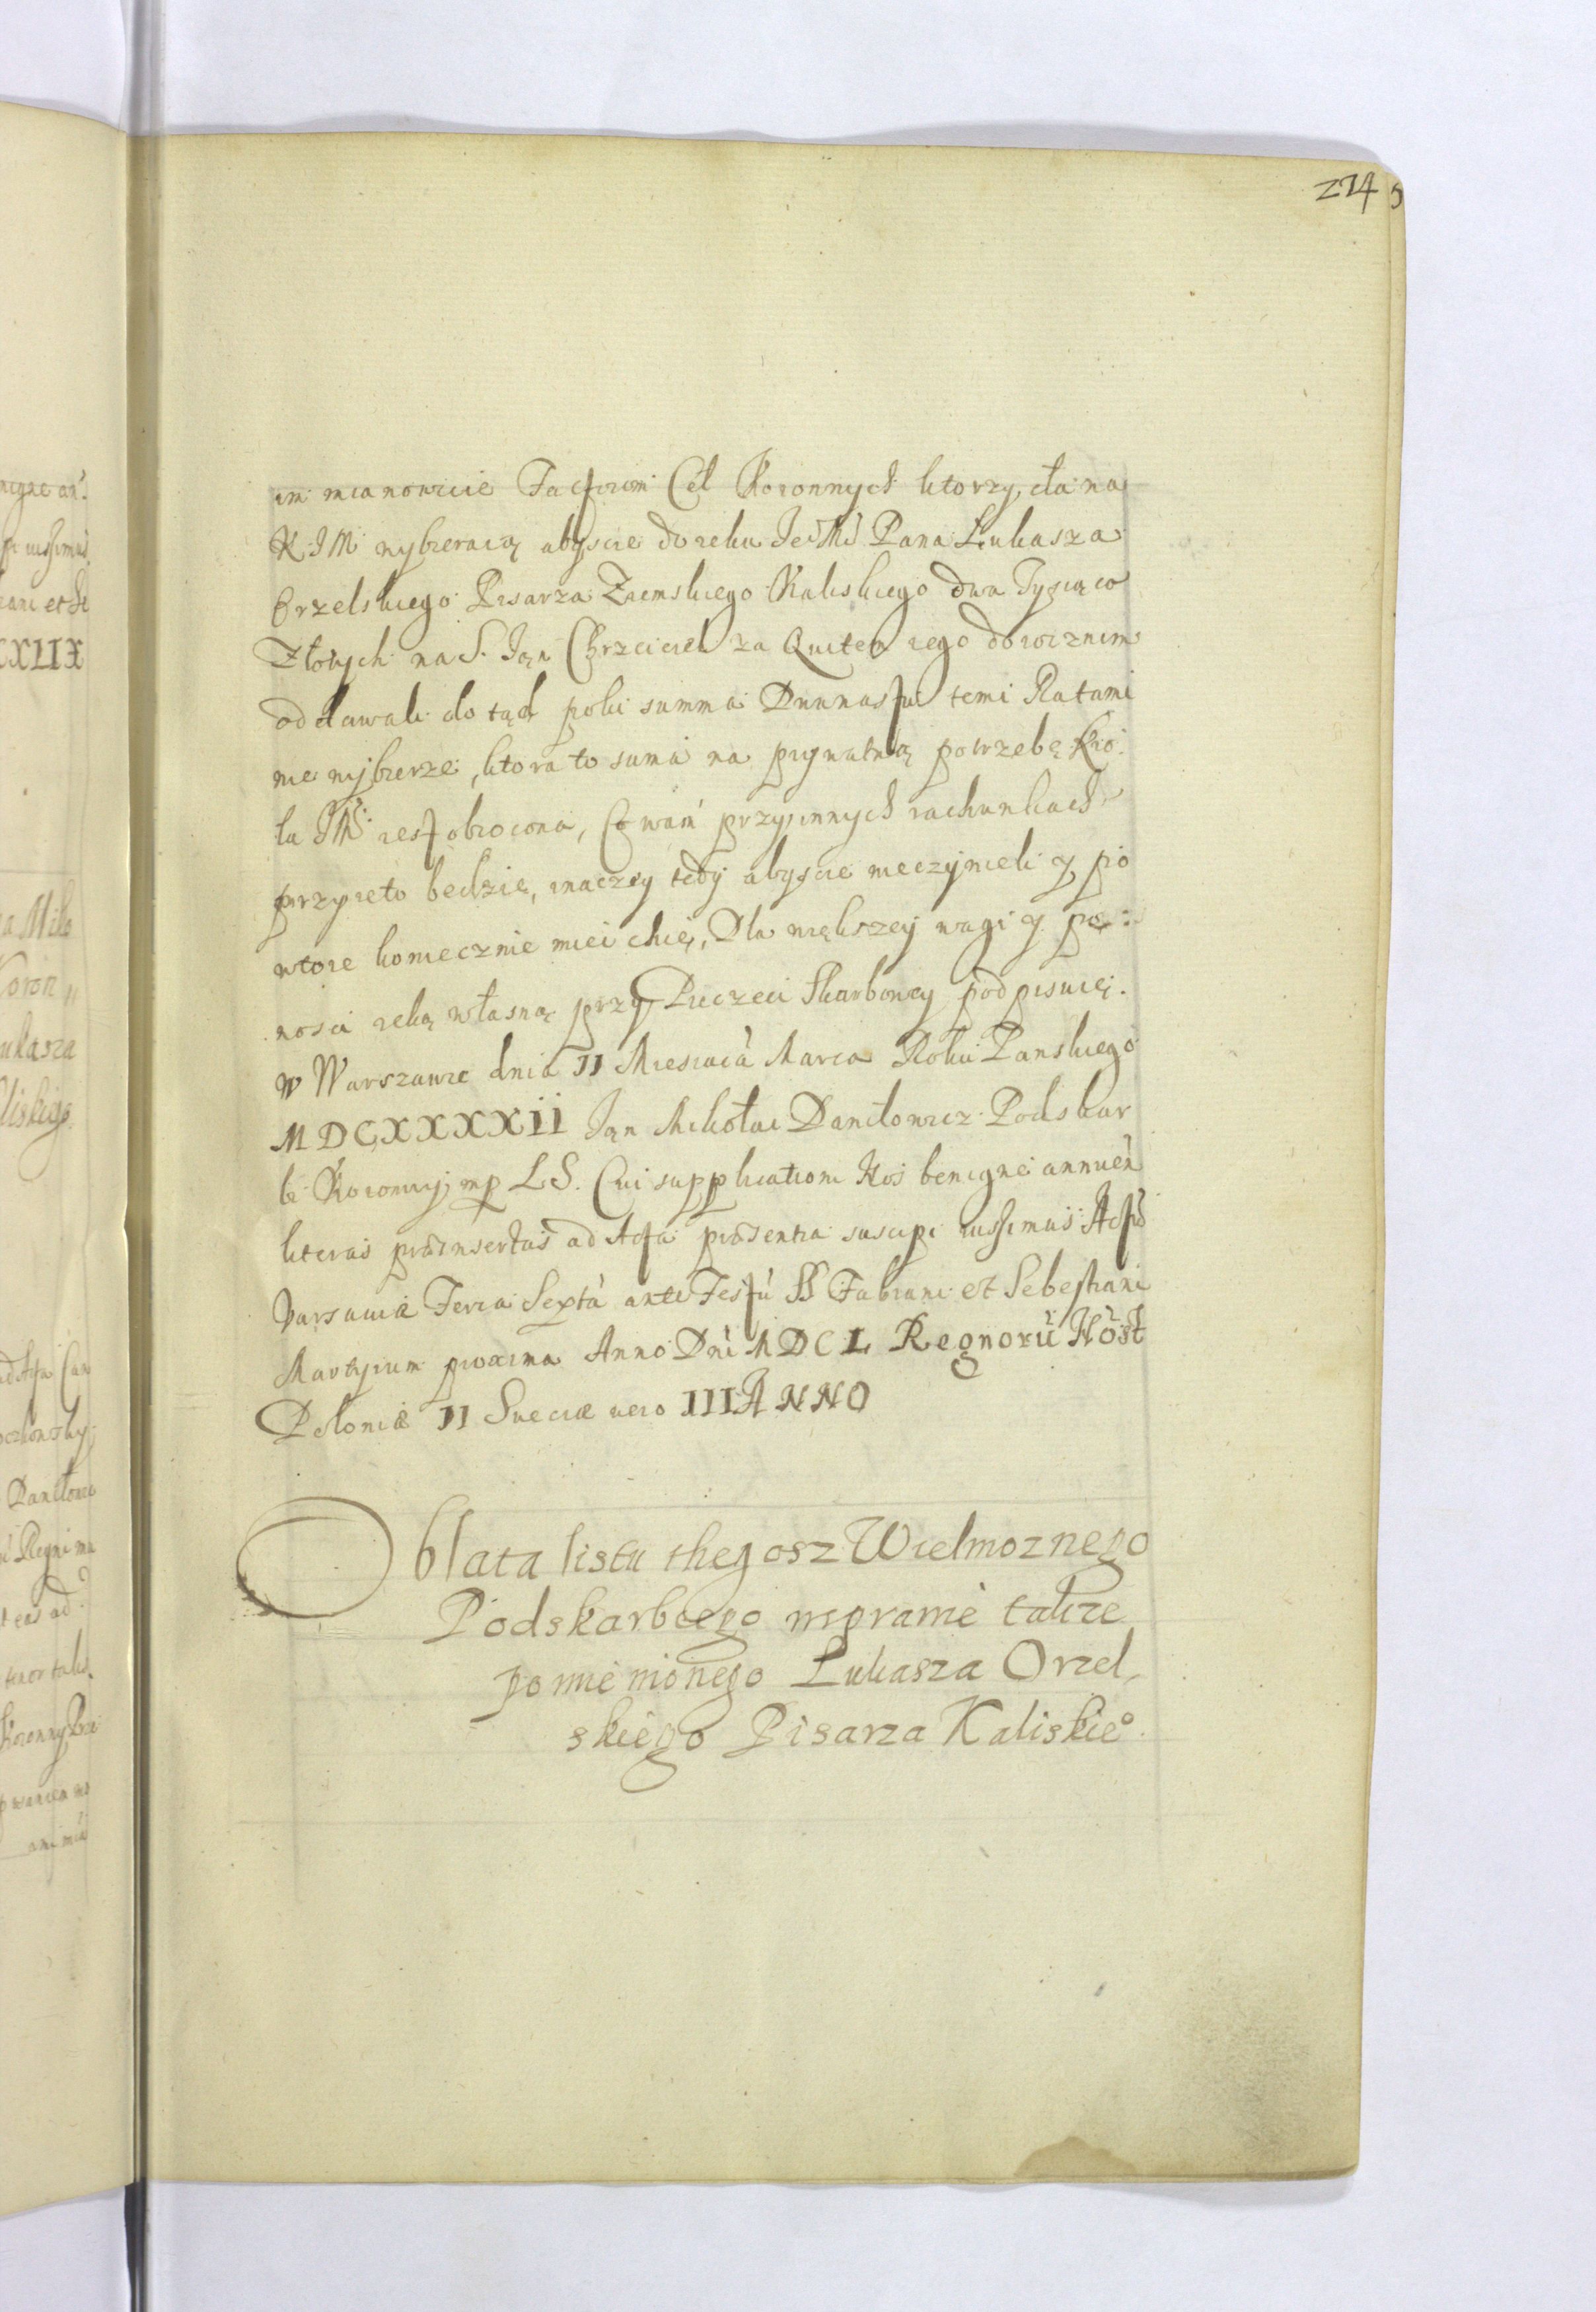 274
im mianowicie Factorom Cel Koronnych ktorzy cła na
K J M wybieraią abyscie do ręku Je Mći Pana Łukasza
Orzelskiego Pisarza Ziemskiego Kaliskiego dwa Tysiąca
Złotych na S. Jan Chrzciciel za Quitem iego dorocznim
oddawali do tąd poki summa Dwunastu temi Ratami
nie wybierze, ktora to suma na prywatną potrzebę Kro
la JM iest obrocona, Co wam przy innych rachunkach
przyięto będzie, inaczey tedy abyscie nieczynieli y po
wtore koniecznie miei chcię, Dla większey wagi y pe
nosci ręką własną przy Pieczeci Skarbowey podpisuię.
W Warszawie dnia II Miesiaca Marca Roku Panskiego
MDCXXXXII Jan Mikołai Daniłowicz Podskar
bi Koronny mp LS. Cui supplicationi Nos benigne annuen
literas præinsertas ad Acta præsentia suscipi iussimus Actũ
Varsaviæ Feria Sexta ante Festũ SS Fabiani et Sebestiani
Martyrum proxima Anno Dni MDCL Regnorũ Nost
Poloniæ II Sueciæ vero III ANNO
Oblata listu thegosz Wielmoznego
Podskarbiego wsprawie takze
pomienionego Lukasza Orzel
skiego Pisarza Kaliskieo